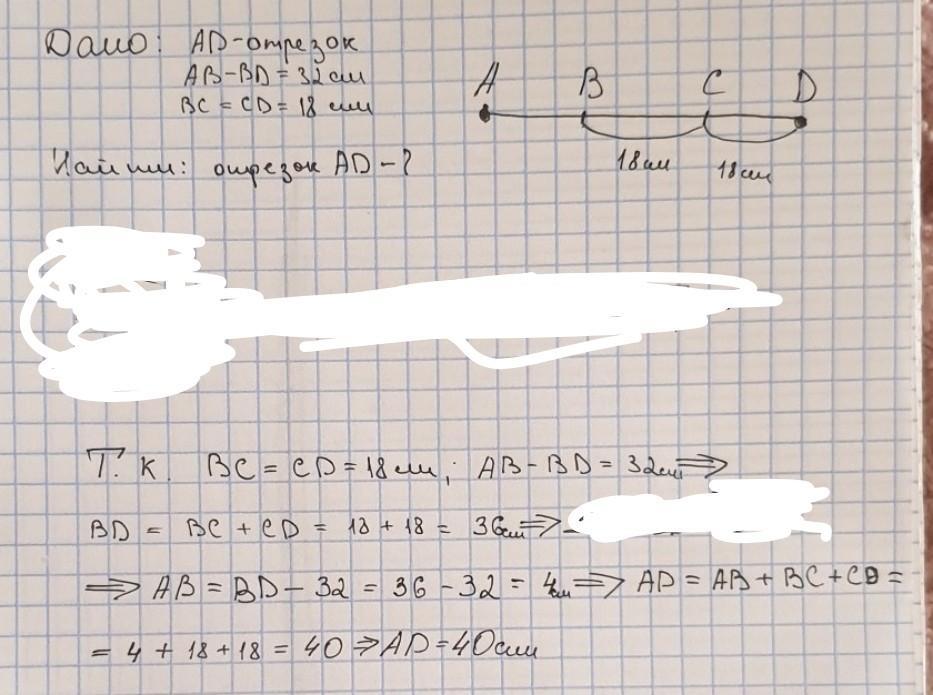 Дано: AD-отрезок
AB-BD = 32 см
BC = CD = 18 см
Найти: отрезок AD - ?
A B C D
18 см 18 см
Т. к. BC = CD = 18 см; AB - BD = 32 см ⟹
BD = BC + CD = 18 + 18 = 36 см ⟹
⟹ AB = BD - 32 = 36 - 32 = 4 см ⟹ AD = AB + BC + CD =
= 4 + 18 + 18 = 40 ⇒ AD = 40 см